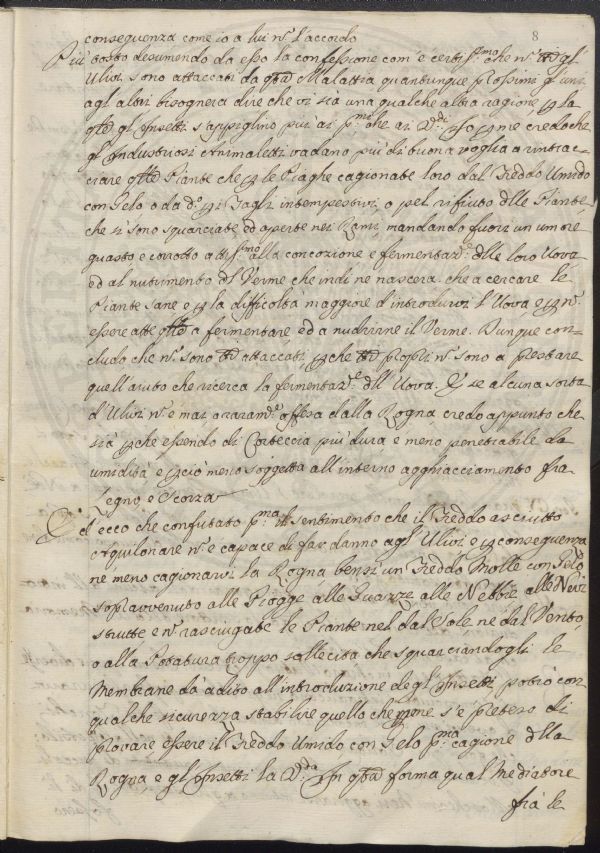 8
conseguenza come io a lui nõ l'accordo
Più tosto desumendo da esso la confessione com'è certissmo che nõ tutti gl'
Ulivi sono attaccati da qta Malattia quantunque prossimi gl'uni
agl'altri bisognerà dire che vi sia una qualche altra ragione p la
qle gl'Insetti s'appiglino più ai pmi che ai 2di. Io p me credo che
gl'Industriosi Animaletti vadano più di buona voglia a rintrac-
ciare qlle Piante che p le Piaghe cagionate loro dal Freddo Umido
con Gelo o da Tagli intempestivi o pel rifiuto dlle Piante
che si sono squarciate ed aperte nei Rami mandando fuori un umore
guasto e corrotto attissmo alla concozione e fermentaze dlle loro Uova
ed al nutrimento dl Verme che indi ne nascerà che a cercare le
Piante sane e p la difficoltà maggiore d'introdurvi l'Uova e p nõ
essere atte qlle a fermentare ed a nudrirne il Verme. Dunque con-
cludo che nõ sono tutti attaccati pche tutti propri nõ sono a prestare
quell'aiuto che ricerca la fermentaze dll'Uova. E se alcuna sorta
d'Ulivi nõ è mai o raramte offesa dalla Rogna credo appunto che
sia pche essendo di Corteccia più dura e meno penetrabile da
umidità e p ciò meno soggetta all'interno agghiacciamento fra
Legno e Scorza
Ed ecco che confutato pma il sentimento che il Freddo asciutto
Aquilonare nõ è capace di far danno agl'Ulivi e p conseguenza
nè meno cagionarvi la Rogna bensì un Freddo Molle con Gelo
sopravvenuto alle Piogge alle Guazze alle Nebbie alle Nevi
strutte e nõ rasciugate le Piante nè dal Sole nè dal Vento,
o alla Potatura troppo sollecita che squarciandogli le
Membrane dà adito all'introduzione degl'Insetti potrò con
qualche sicurezza stabilire quello che pme s'è preteso di
provare essere il Freddo Umido con Gelo pma cagione dlla
Rogna, e gl'Insetti la 2da In qta forma qual Mediatore
frà le